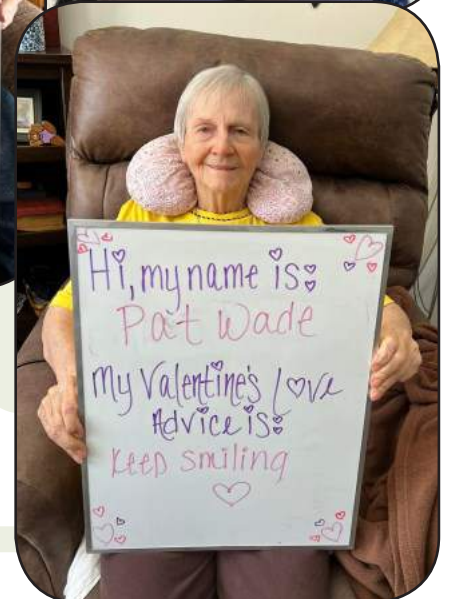 Hi, my name is:
Pat Wade
My Valentine's Love
Advice is:
Keep smiling